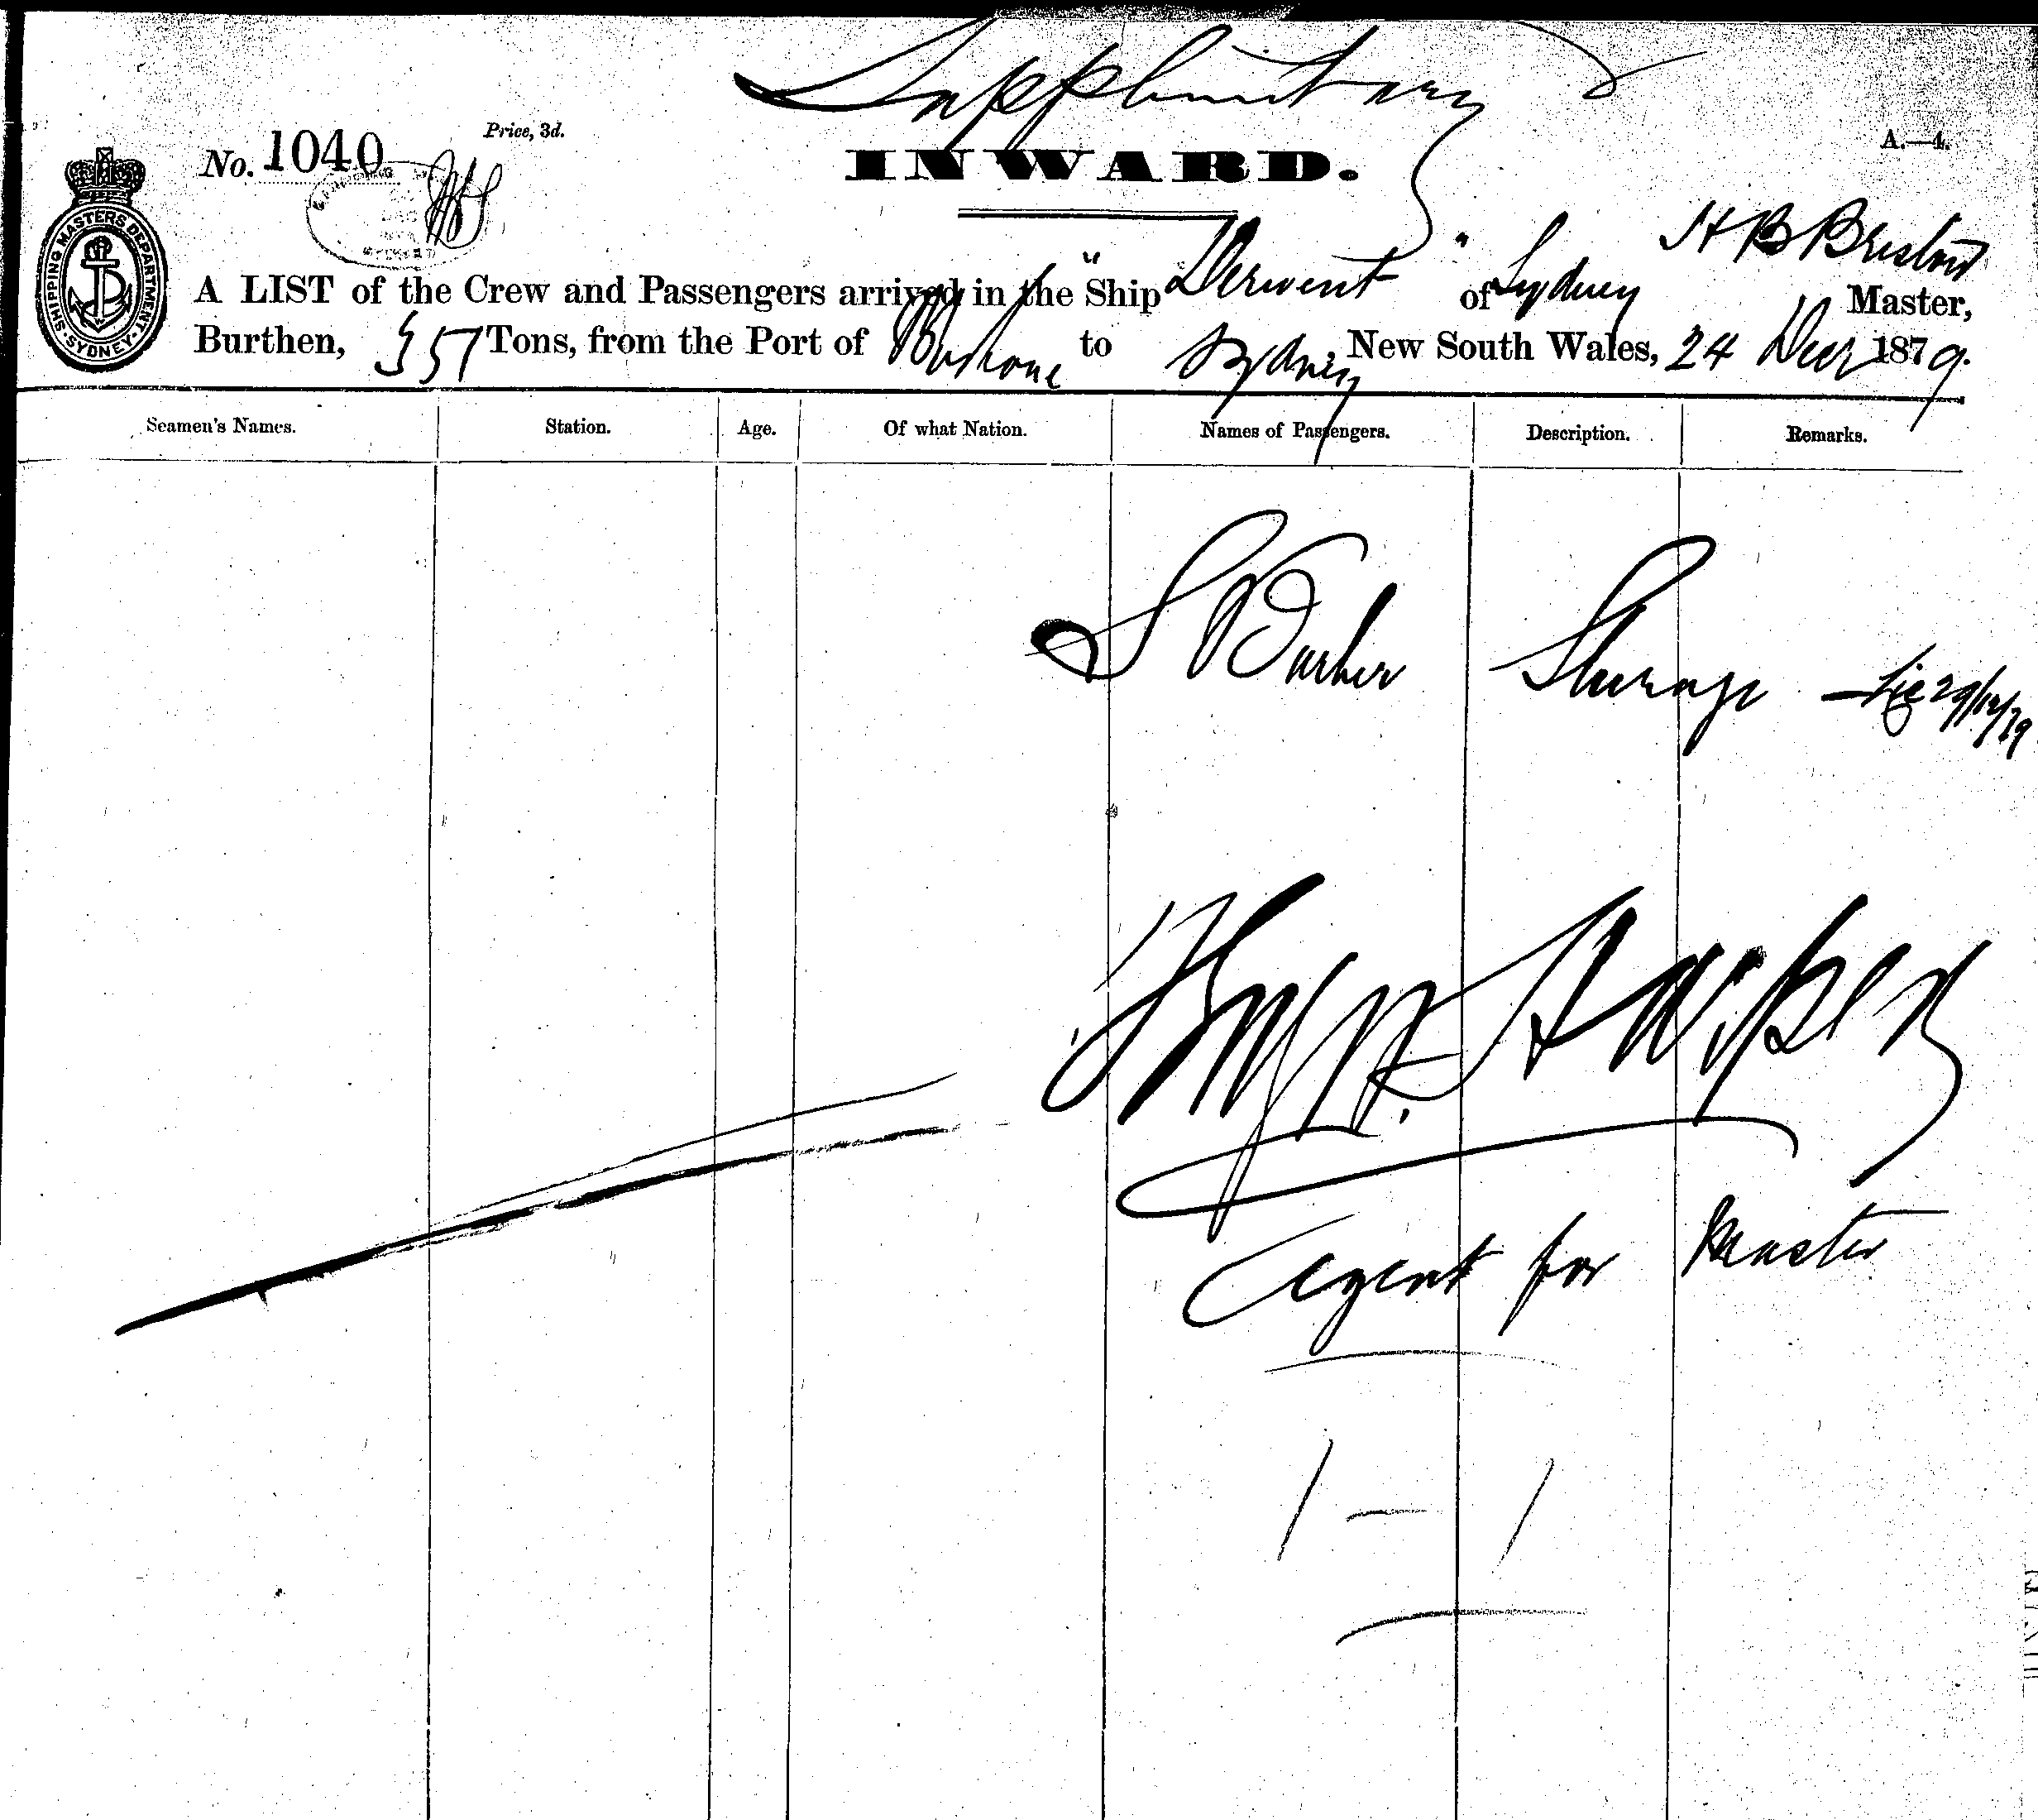 Supplimentary
Price, 3d.
A.—4.
No. 1040
INWARD.
SHIPPING MASTERS DEPARTMENT · SYDNEY ·
A LIST of the Crew and Passengers arrived in the Ship "Derwent" of Sydney H B Bristow Master,
Burthen, 357 Tons, from the Port of Brisbane to Sydney, New South Wales, 24 Decr 1879.
Seamen's Names. Station. Age. Of what Nation. Names of Passengers. Description. Remarks.
S Barber Steerage 29/12/79
Agent for Master
1 — 1